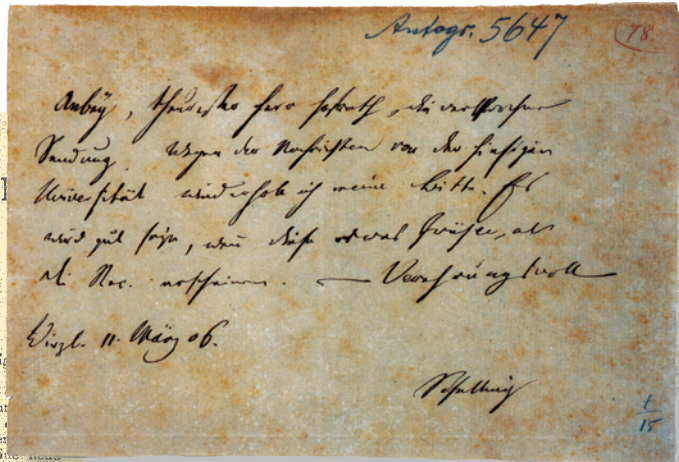 Autogr. 5647
78
Anbey, theuerster Herr Hofrath, die versprochne
Sendung. Wegen der Nachrichten von der hiesigen
Universität wiederhole ich meine Bitte. Es
wird gut seyn, wenn diese etwas früher, als
die Rec. erscheinen. — Verehrungsvoll
Wirzb. 11. März 06.
Schelling
1
15